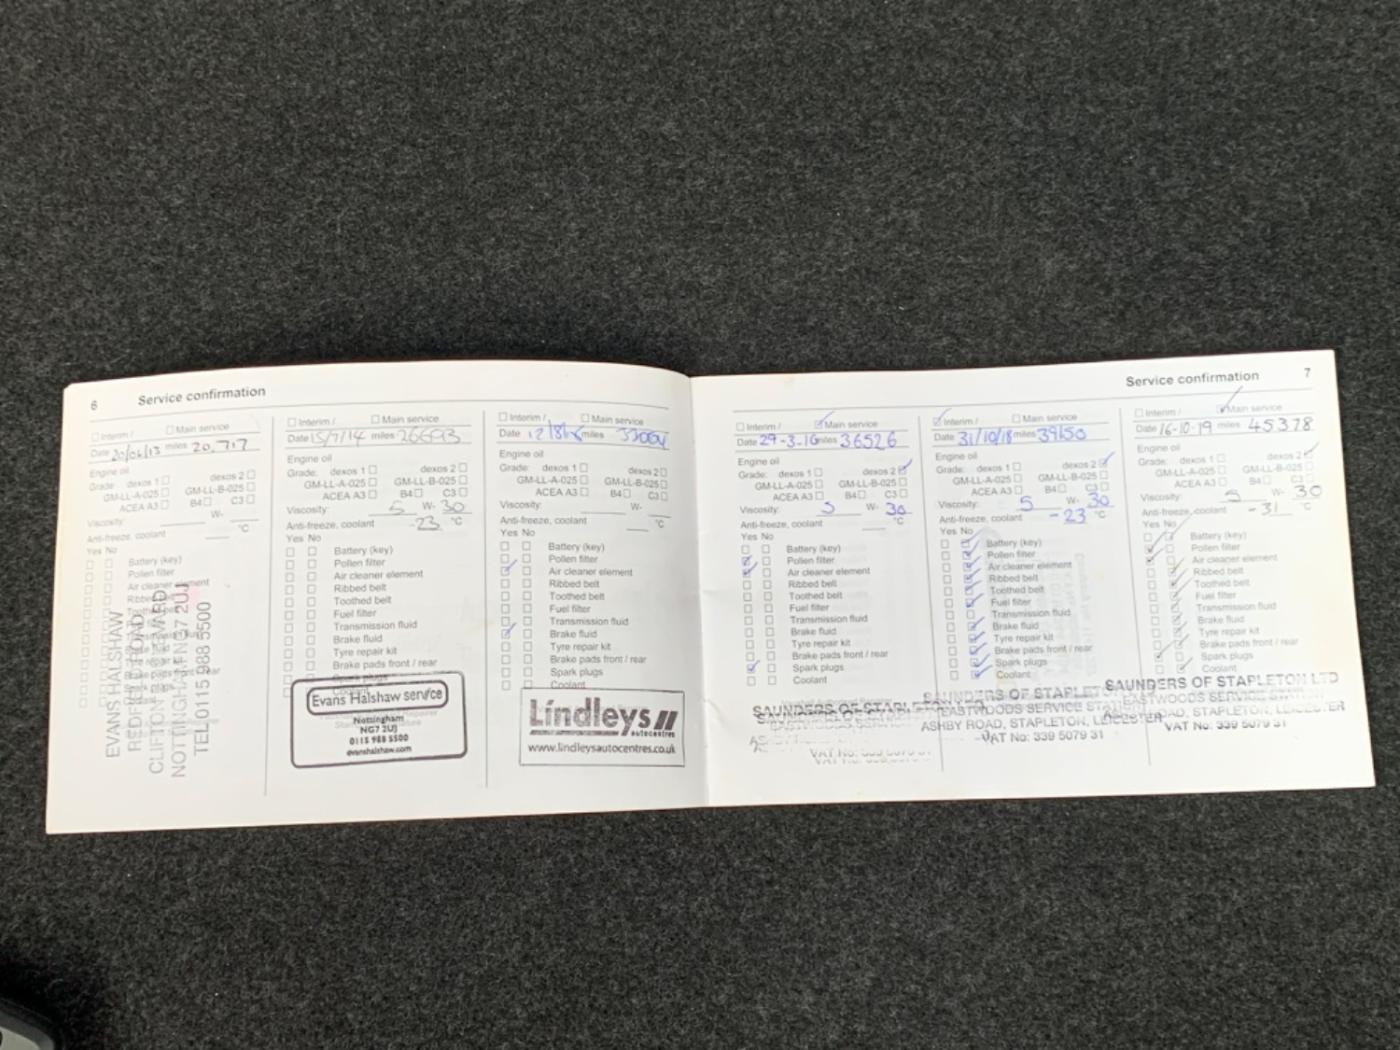 6 Service confirmation
Interim / Main service
Date 20/06/13 miles 20,717
Engine oil
Grade: dexos 1 dexos 2
GM-LL-A-025 GM-LL-B-025
ACEA A3 B4 C3
Viscosity: W-
Anti-freeze, coolant °C
Yes No
Battery (key)
Pollen filter
Air cleaner element
EVANS HALSHAW
NOTTINGHAM NG7 2UJ
TEL 0115 988 5500
Interim / Main service
Date 15/7/14 miles
Engine oil
Grade: dexos 1 dexos 2
GM-LL-A-025 GM-LL-B-025
ACEA A3 B4 C3
Viscosity: 5 W- 30
Anti-freeze, coolant -23 °C
Yes No
Battery (key)
Pollen filter
Air cleaner element
Ribbed belt
Toothed belt
Fuel filter
Transmission fluid
Brake fluid
Tyre repair kit
Brake pads front / rear
Spark plugs
Coolant
Evans Halshaw service
Nottingham
NG7 2UJ
0115 988 5500
evanshalshaw.com
Interim / Main service
Date miles
Engine oil
Grade: dexos 1 dexos 2
GM-LL-A-025 GM-LL-B-025
ACEA A3 B4 C3
Viscosity: W-
Anti-freeze, coolant °C
Yes No
Battery (key)
Pollen filter
Air cleaner element
Ribbed belt
Toothed belt
Fuel filter
Transmission fluid
Brake fluid
Tyre repair kit
Brake pads front / rear
Spark plugs
Coolant
Lindleys
autocentres
www.lindleysautocentres.co.uk
Service confirmation 7
Interim / Main service
Date 29-3-16 miles 36526
Engine oil
Grade: dexos 1 dexos 2
GM-LL-A-025 GM-LL-B-025
ACEA A3 B4 C3
Viscosity: 5 W- 30
Anti-freeze, coolant °C
Yes No
Battery (key)
Pollen filter
Air cleaner element
Ribbed belt
Toothed belt
Fuel filter
Transmission fluid
Brake fluid
Tyre repair kit
Brake pads front / rear
Spark plugs
Coolant
SAUNDERS OF STAPLETON
Interim / Main service
Date 31/10/18 miles 39150
Engine oil
Grade: dexos 1 dexos 2
GM-LL-A-025 GM-LL-B-025
ACEA A3 B4 C3
Viscosity: 5 W- 30
Anti-freeze, coolant -23 °C
Yes No
Battery (key)
Pollen filter
Air cleaner element
Ribbed belt
Toothed belt
Fuel filter
Transmission fluid
Brake fluid
Tyre repair kit
Brake pads front / rear
Spark plugs
Coolant
SAUNDERS OF STAPLETON
EASTWOODS SERVICE
ASHBY ROAD, STAPLETON, LEICESTER
VAT No: 339 5079 31
Interim / Main service
Date 16-10-19 miles 45378
Engine oil
Grade: dexos 1 dexos 2
GM-LL-A-025 GM-LL-B-025
ACEA A3 B4 C3
Viscosity: 5 W- 30
Anti-freeze, coolant -31 °C
Yes No
Battery (key)
Pollen filter
Air cleaner element
Ribbed belt
Toothed belt
Fuel filter
Transmission fluid
Brake fluid
Tyre repair kit
Brake pads front / rear
Spark plugs
Coolant
SAUNDERS OF STAPLETON LTD
EASTWOODS SERVICE STATION
ROAD, STAPLETON, LEICESTER
VAT No: 339 5079 31